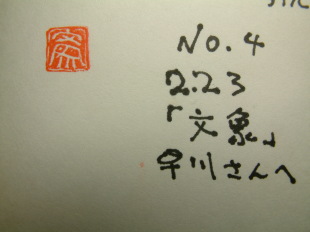 No.4
2.23
「文象」
早川さんへ